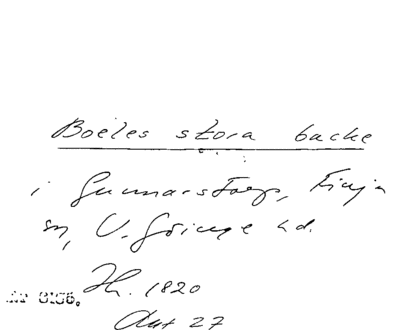 Boëles stora backe
i Gunnarstorp, Finja
sn, V. Göinge hd.
Jh. 1820
Akt 27